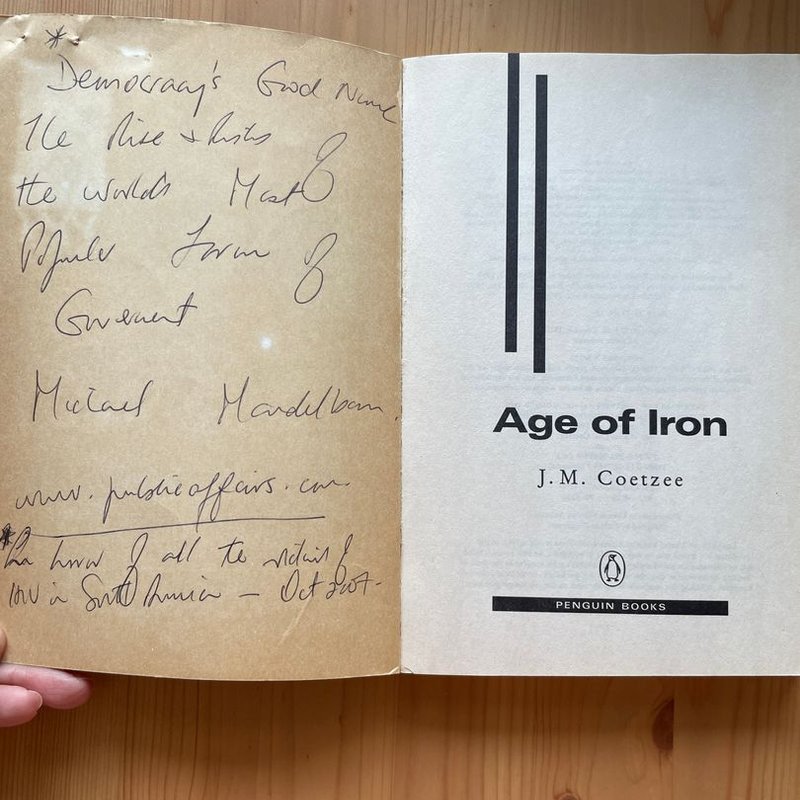 *
Democracy's Good Name
The Rise & Risks of
the world's Most
Populer Form of
Goverment
Michael Mandelbaum.
www.publicaffairs.com
* of all the victims of
HIV in South America — Oct 2007-
Age of Iron
J. M. Coetzee
PENGUIN BOOKS